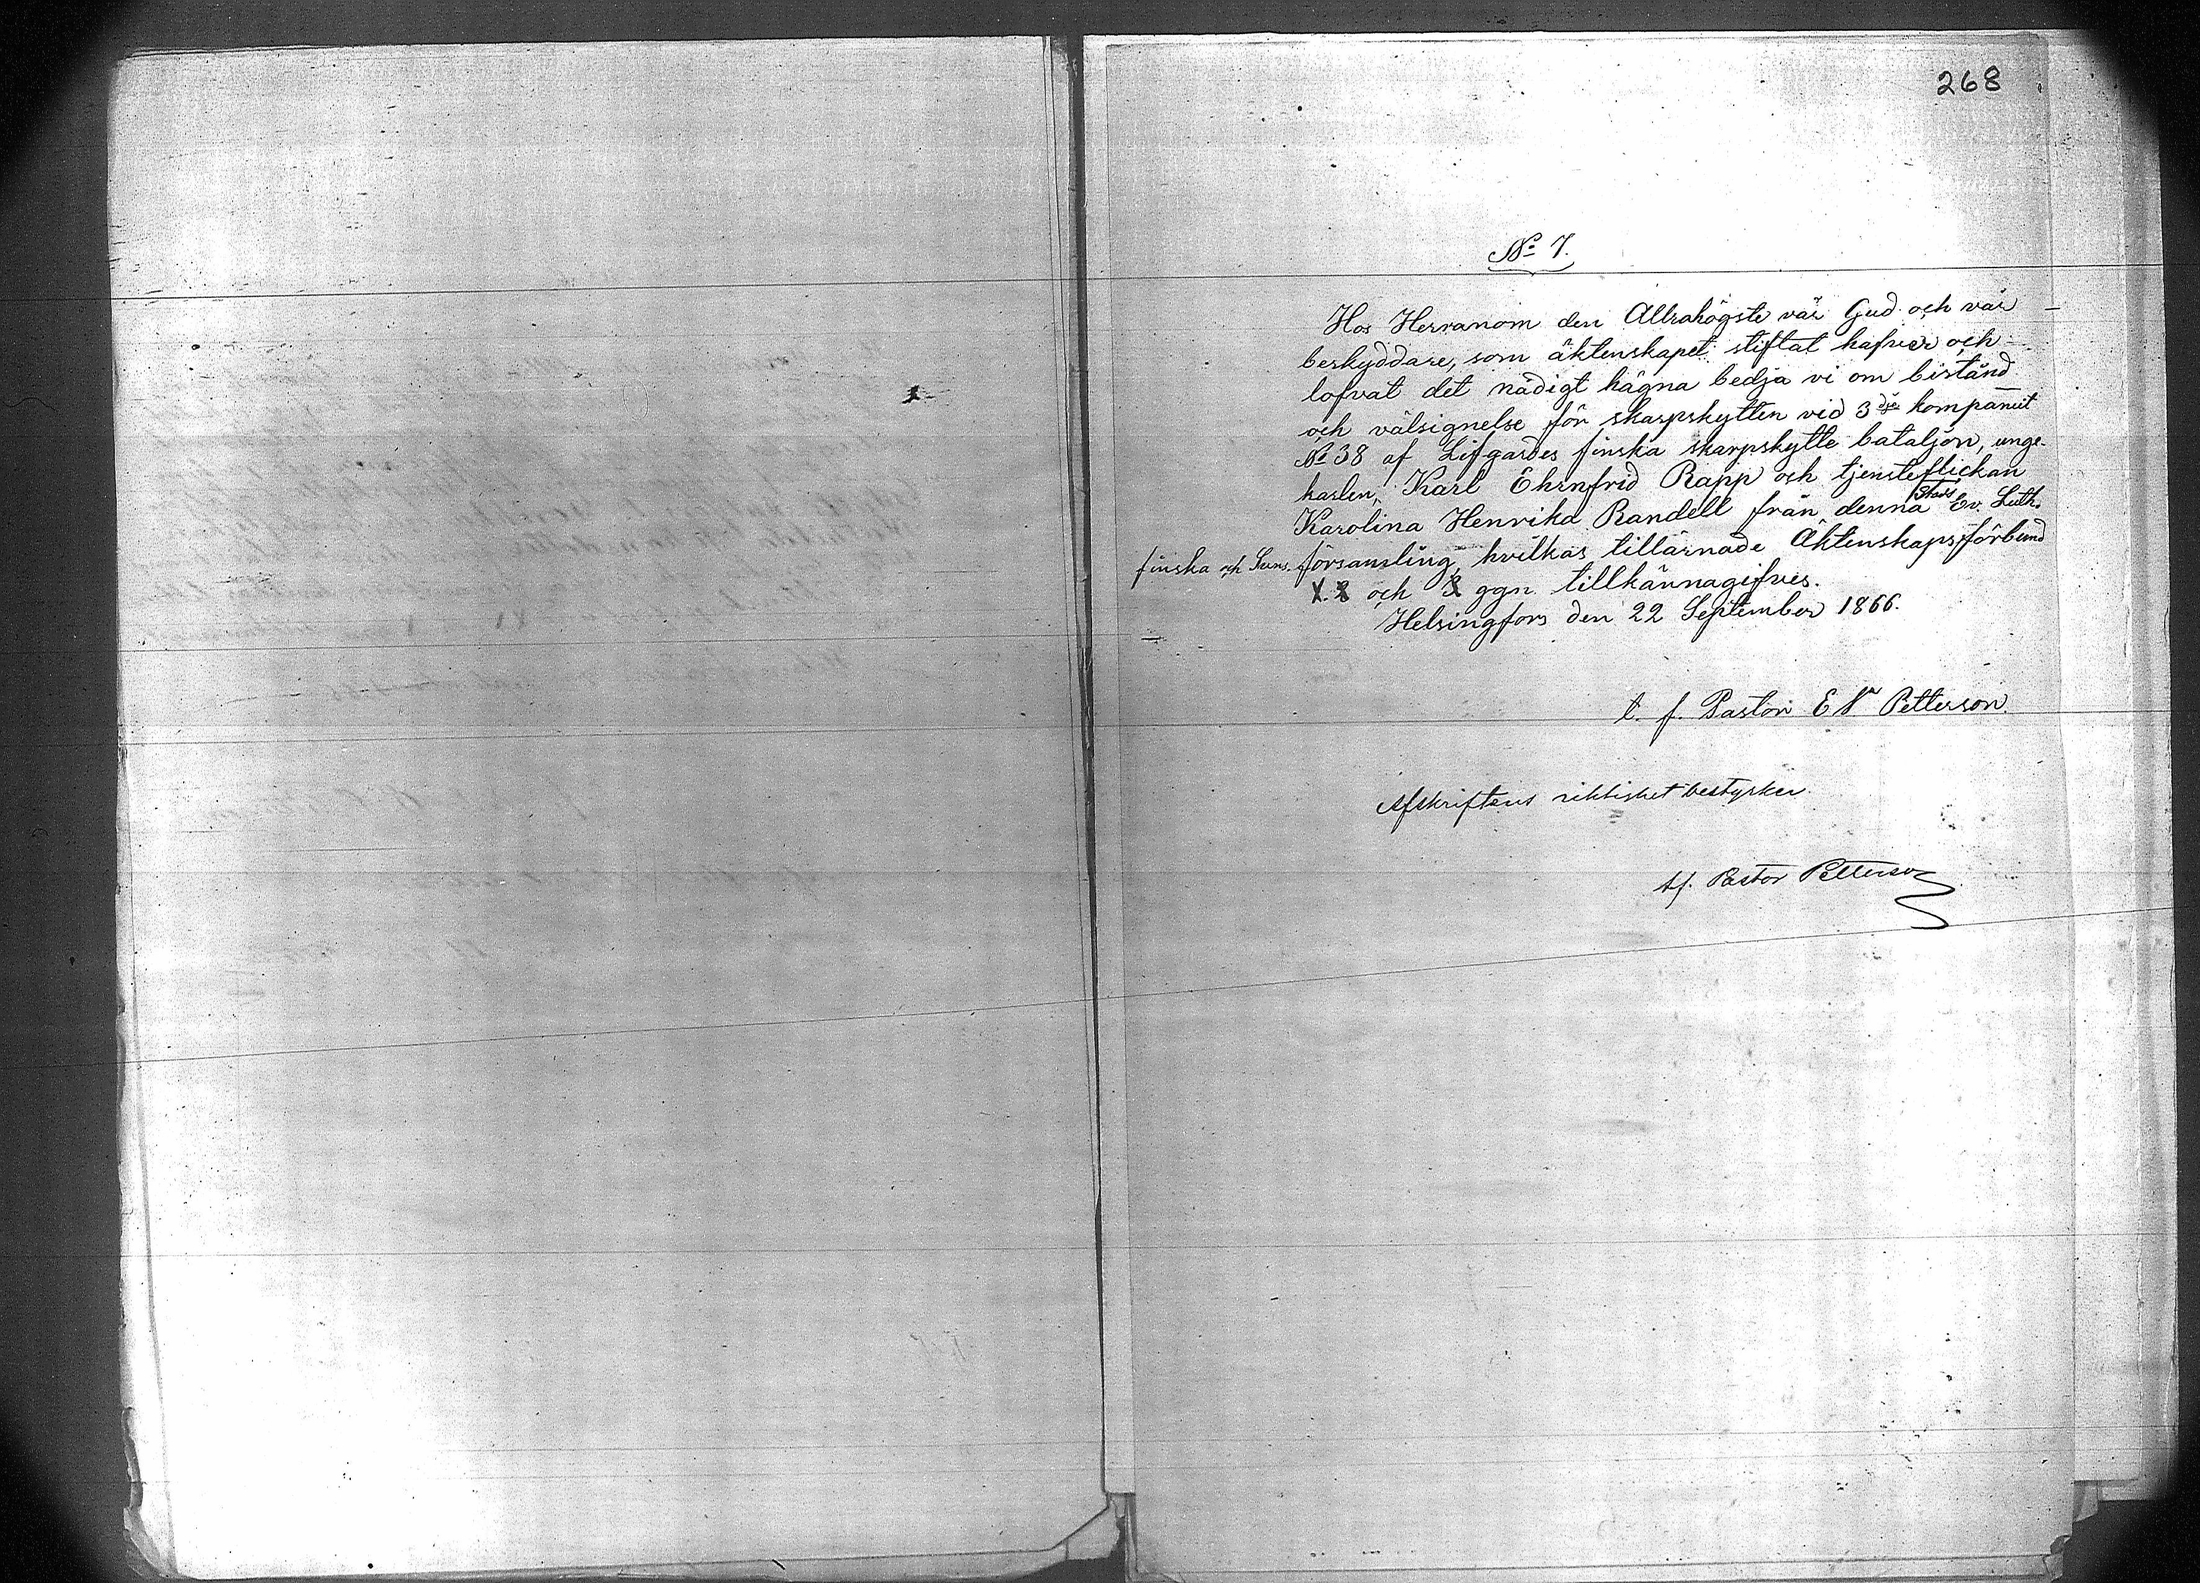 268
No 7.
Hos Herranom den Allrahögste vår Gud och vår
beskyddare, som äktenskapet stiftat hafver och
lofvat det nådigt hägna bedja vi om bistånd
och välsignelse för skarpskytten vid 3dje kompaniet
No 38 af Lifgardes finska skarpskytte bataljon, unge-
karlen, Karl Ehrnfrid Rapp och tjensteflickan
Karolina Henrika Randell från denna Stads Ev. Luth.
finska och Svens. församling, hvilkas tillärnade Äktenskapsförbund
X. 2 och 3 ggn tillkännagifves.
Helsingfors den 22 September 1866.
t. f. Pastor E Petterson.
Afskriftens riktighet bestyrker
tf. Pastor Petterson